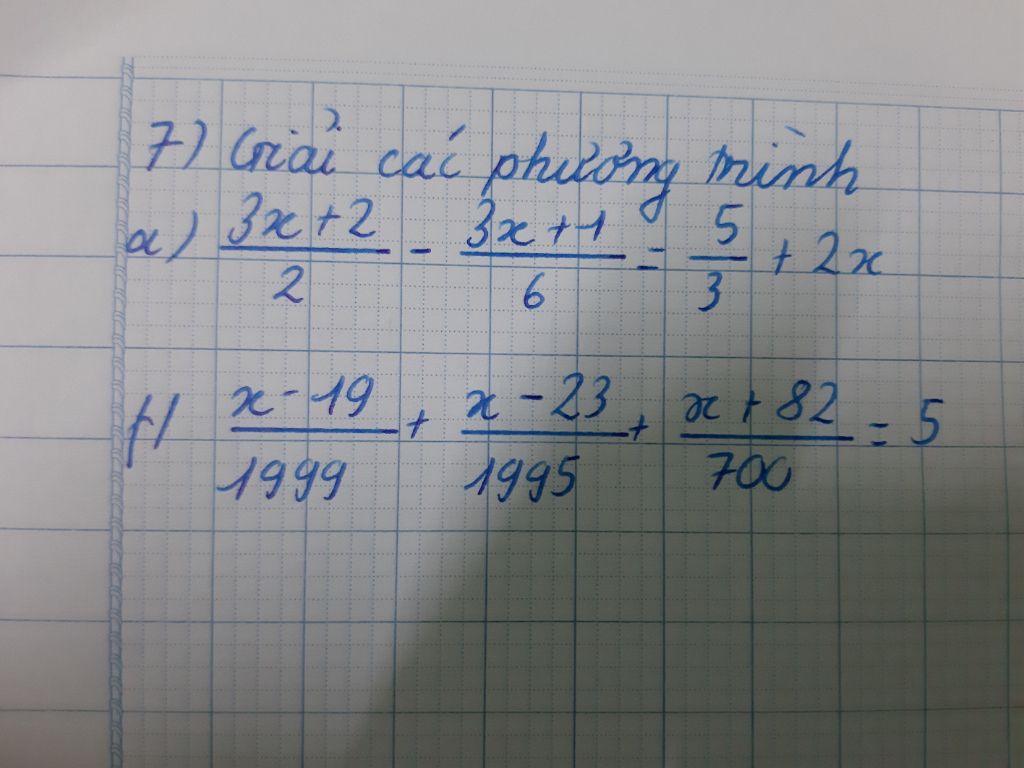 7) Giải các phương trình
a) \frac{3x+2}{2} - \frac{3x+1}{6} = \frac{5}{3} + 2x
f) \frac{x-19}{1999} + \frac{x-23}{1995} + \frac{x+82}{700} = 5